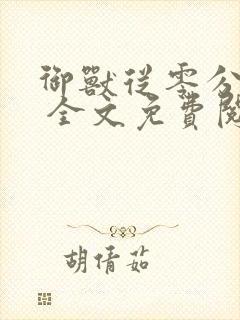 御獸從零分
全文免費閱
胡倩茹